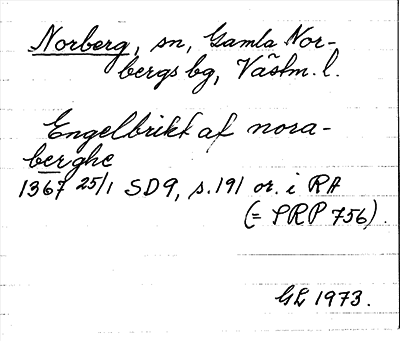 Norberg, sn, Gamla Nor-
bergs bg, Västm. l.
Engelbrikt af nora-
berghe
1367 25/1 SD9, s. 191 or. i RA
(= SRP 756).
GL 1973.